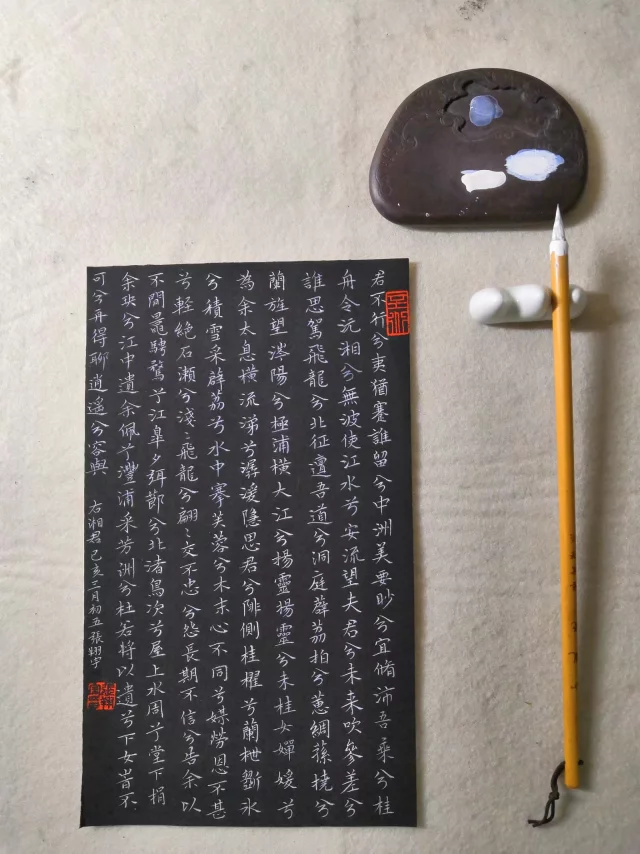 君不行兮夷猶蹇誰留兮中洲美要眇兮宜脩沛吾乘兮桂
舟令沅湘兮無波使江水兮安流望夫君兮未来吹參差兮
誰思駕飛龍兮北征邅吾道兮洞庭薜荔拍兮蕙綢蓀橈兮
蘭旌望涔陽兮極浦橫大江兮揚靈揚靈兮未桂女嬋媛兮
為余太息橫流涕兮潺湲隱思君兮陫側桂櫂兮蘭枻斲氷
兮積雪采薜荔兮水中搴芙蓉兮木末心不同兮媒勞恩不甚
兮輕絕石瀨兮淺〻飛龍兮翩〻交不忠兮怨長期不信兮告余以
不閒鼂騁騖兮江皋夕弭節兮北渚鳥次兮屋上水周兮堂下捐
余玦兮江中遺余佩兮澧浦采芳洲兮杜若將以遺兮下女旹不
可兮再得聊逍遙兮容與
右湘君己亥三月初五張翔宇